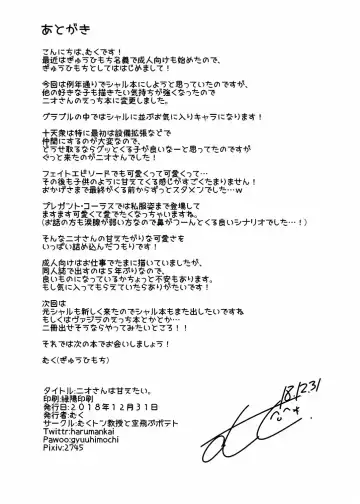 あとがき
こんにちは、たくです！
最近はぎゅうひもち名義で成人向けも始めたので、
ぎゅうひもちとしてははじめまして！
今回は例年通りでシャル本にしようと思っていたのですが、
他の好きな子も描きたい気持ちが強くなったので
ニオさんのえっち本に変更しました。
グラブルの中ではシャルに並ぶお気に入りキャラになります！
十天衆は特に最初は設備拡張などで
仲間にするのが大変なので、
どうせ取るならグッとくる子が良いなーと思ってたのですが
やっと来たのがニオさんでした！
フェイトエピソードでも可愛くって可愛くって…
その後も子供のように甘えてくる感じがすごくたまりません！
おかげさまで最終がくる前からずっとスタメンでした…w
プレゼント・コーラスでは私服姿まで登場して
ますます可愛くて愛でたくなっちゃいますね。
(お話の方も涙腺が弱い方なので鼻がつーんとくる良いシナリオでした…！)
そんなニオさんの甘えたがりな可愛さを
いっぱい詰め込んだつもりです！
成人向けはお仕事でたまに描いていましたが、
同人誌で出すのは５年ぶりなので、
良いものになっているかちょっと不安もあります。
もし気に入ってもらえていたらありがたいです！
次回は
元シャルも新しく来たのでシャル本もまた出したいですね
もしくはヴァジラのえっち本とかとか…
二冊出せそうならやってみたいところ！！
それでは次の本でお会いしましょう！
たく(ぎゅうひもち)
タイトル:ニオさんは甘えたい。
印刷:緑陽印刷
発行日:２０１８年１２月３１日
発行者:たく
サークル:たくトン教授と空飛ぶポテト
Twittr:harumankai
Pawoo:gyuuhimochi
Pixiv:2745
18.12.31